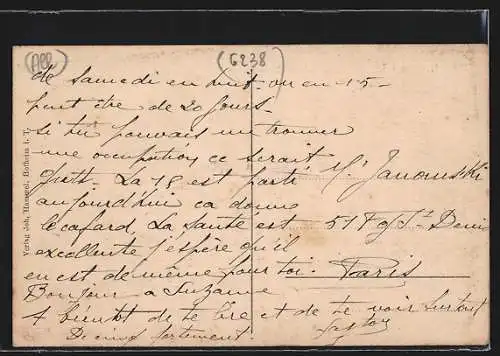 (All) (6238)
de Samedi en huit ou en 15
peut être de 20 jours.
si tu pouvais me trouver
une occupation ce serait
M. Janowski
La 18 est parti
aujourd'hui ca donne
le cafard. La santé est
51 Fg St Denis
excellente j'espère qu'il
en est de même pour toi.
Paris
Bonjour a Suzanne
A bientôt de te lire et de te voir surtout
fortement.
Verlag Joh. Hofheim i. T.